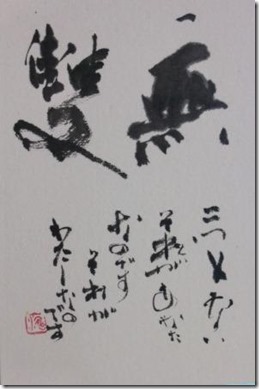 無雙
二つとない
それがあなた
なのです
それが
わたしなの
です